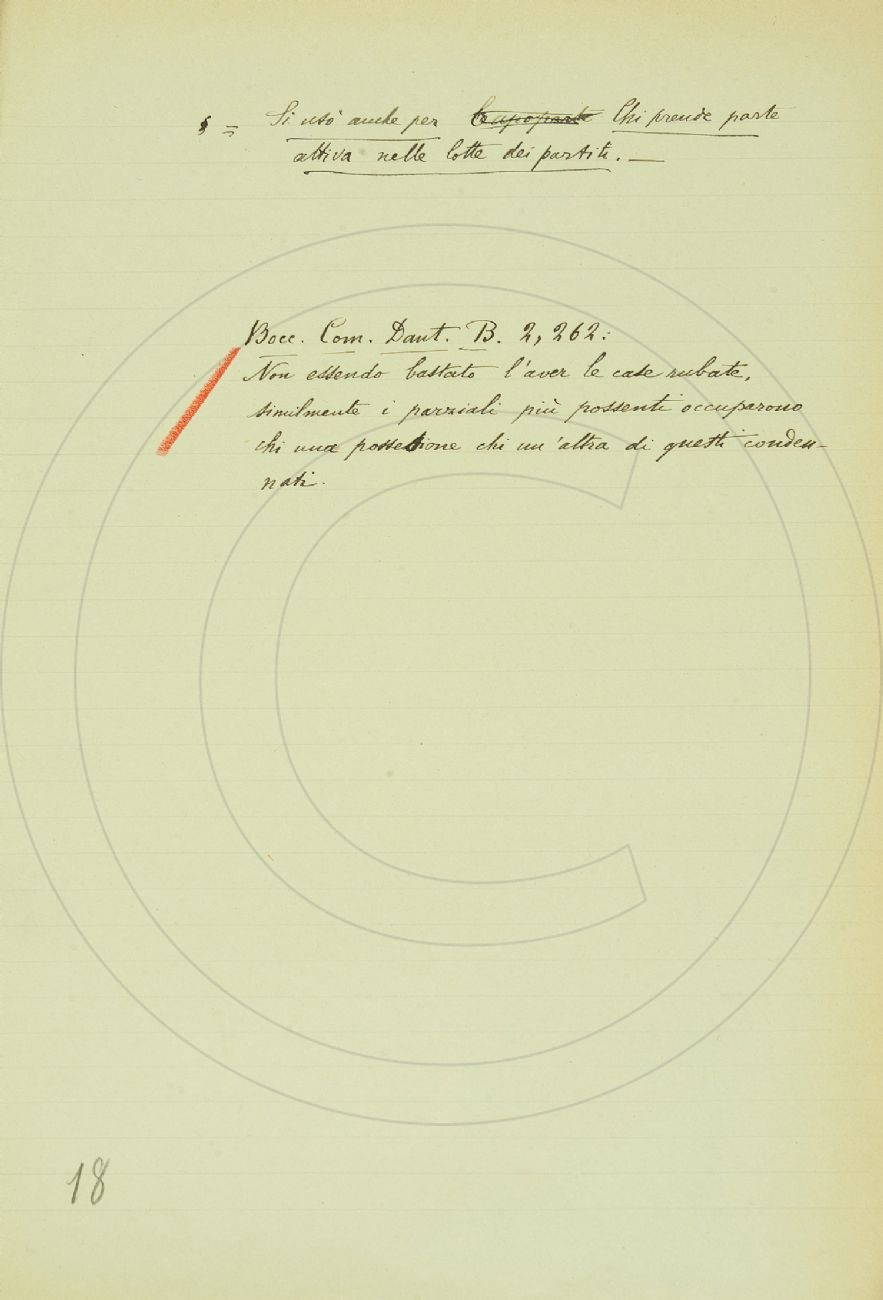 § = Si usò anche per Capoparte Chi prende parte
attiva nelle lotte dei partiti. —
Bocc. Com. Dant. B. 2, 262:
Non essendo bastato l'aver le case rubate,
similmente i parziali più possenti occuparono
chi una possessione chi un'altra di questi conden-
nati.
18